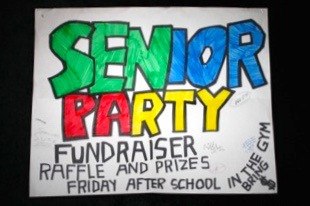 SENIOR
PARTY
FUNDRAISER
RAFFLE AND PRIZES
FRIDAY AFTER SCHOOL IN THE GYM
BRING $$